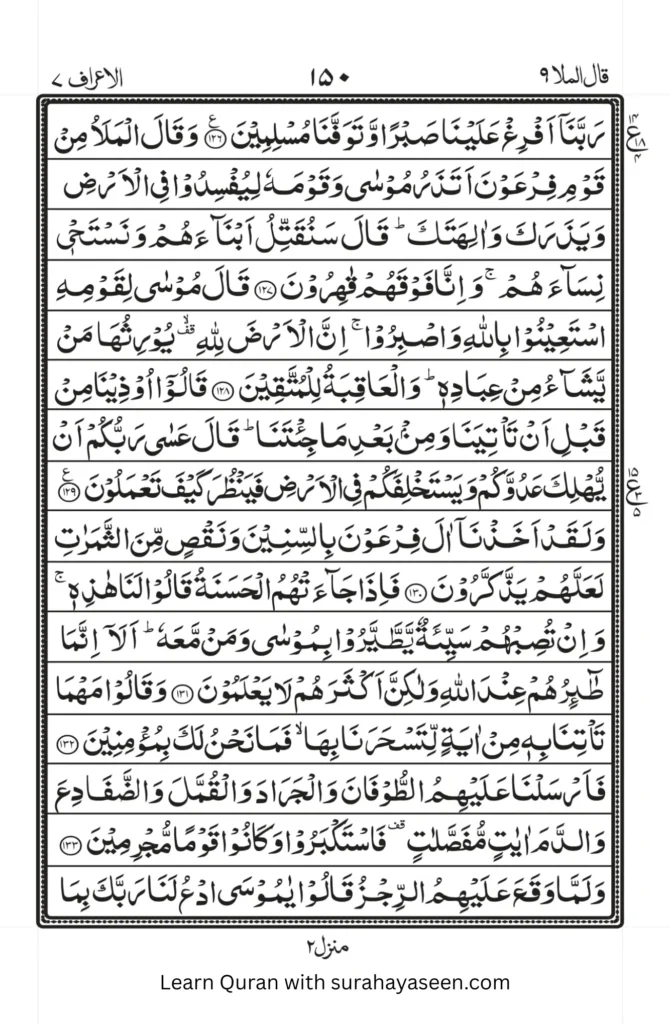 قال الملا ٩
١٥٠
الاعراف ٧
رَبَّنَاۤ اَفۡرِغۡ عَلَيۡنَا صَبۡرًا وَّتَوَفَّنَا مُسۡلِمِيۡنَ ﴿١٢٦﴾ ع وَقَالَ الۡمَلَاُ مِنۡ
قَوۡمِ فِرۡعَوۡنَ اَتَذَرُ مُوۡسٰى وَقَوۡمَهٗ لِيُفۡسِدُوۡا فِى الۡاَرۡضِ
وَيَذَرَكَ وَاٰلِهَتَكَ‌ ؕ قَالَ سَنُقَتِّلُ اَبۡنَآءَهُمۡ وَنَسۡتَحۡىٖ
نِسَآءَهُمۡ‌ ۚ وَاِنَّا فَوۡقَهُمۡ قٰهِرُوۡنَ ﴿١٢٧﴾ قَالَ مُوۡسٰى لِقَوۡمِهِ
اسۡتَعِيۡنُوۡا بِاللّٰهِ وَاصۡبِرُوۡا‌ ۚ اِنَّ الۡاَرۡضَ لِلّٰهِ ۙ قف يُوۡرِثُهَا مَنۡ
يَّشَآءُ مِنۡ عِبَادِهٖ‌ ؕ وَالۡعَاقِبَةُ لِلۡمُتَّقِيۡنَ ﴿١٢٨﴾ قَالُوۡۤا اُوۡذِيۡنَا مِنۡ
قَبۡلِ اَنۡ تَاۡتِيَنَا وَمِنۡۢ بَعۡدِ مَا جِئۡتَنَا‌ ؕ قَالَ عَسٰى رَبُّكُمۡ اَنۡ
يُّهۡلِكَ عَدُوَّكُمۡ وَيَسۡتَخۡلِفَكُمۡ فِى الۡاَرۡضِ فَيَنۡظُرَ كَيۡفَ تَعۡمَلُوۡنَ ﴿١٢٩﴾ ع
وَلَقَدۡ اَخَذۡنَاۤ اٰلَ فِرۡعَوۡنَ بِالسِّنِيۡنَ وَنَقۡصٍ مِّنَ الثَّمَرٰتِ
لَعَلَّهُمۡ يَذَّكَّرُوۡنَ ﴿١٣٠﴾ فَاِذَا جَآءَتۡهُمُ الۡحَسَنَةُ قَالُوۡا لَنَا هٰذِهٖ‌ ۚ
وَاِنۡ تُصِبۡهُمۡ سَيِّئَةٌ يَّطَّيَّرُوۡا بِمُوۡسٰى وَمَنۡ مَّعَهٗ‌ ؕ اَلَاۤ اِنَّمَا
طٰٓٮِٕرُهُمۡ عِنۡدَ اللّٰهِ وَلٰـكِنَّ اَكۡثَرَهُمۡ لَا يَعۡلَمُوۡنَ ﴿١٣١﴾ وَقَالُوۡا مَهۡمَا
تَاۡتِنَا بِهٖ مِنۡ اٰيَةٍ لِّتَسۡحَرَنَا بِهَا ۙ فَمَا نَحۡنُ لَكَ بِمُؤۡمِنِيۡنَ ﴿١٣٢﴾
فَاَرۡسَلۡنَا عَلَيۡهِمُ الطُّوۡفَانَ وَالۡجَرَادَ وَالۡقُمَّلَ وَالضَّفَادِعَ
وَالدَّمَ اٰيٰتٍ مُّفَصَّلٰتٍ قف فَاسۡتَكۡبَرُوۡا وَكَانُوۡا قَوۡمًا مُّجۡرِمِيۡنَ ﴿١٣٣﴾
وَلَمَّا وَقَعَ عَلَيۡهِمُ الرِّجۡزُ قَالُوۡا يٰمُوۡسَى ادۡعُ لَنَا رَبَّكَ بِمَا
منزل ٢
Learn Quran with surahayaseen.com